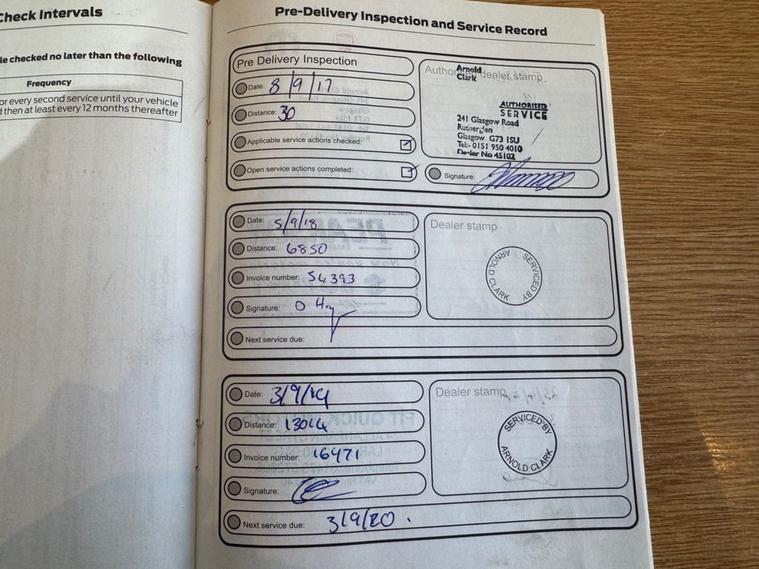 Check Intervals
le checked no later than the following
Frequency
or every second service until your vehicle
d then at least every 12 months thereafter
Pre-Delivery Inspection and Service Record
Pre Delivery Inspection
Date: 8/9/17
Distance: 30
Applicable service actions checked:
Open service actions completed:
Authorised dealer stamp
Arnold
Clark
AUTHORISED
SERVICE
241 Glasgow Road
Rutherglen
Glasgow G73 1SU
Tel:- 0151 950 4010
Dealer No 45102
Signature:
Date: 5/9/18
Distance: 6850
Invoice number: 54393
Signature:
Next service due:
Dealer stamp
SERVICED BY
ARNOLD CLARK
Date: 3/9/19
Distance: 13014
Invoice number: 16471
Signature:
Next service due: 3/9/20.
Dealer stamp
SERVICED BY
ARNOLD CLARK